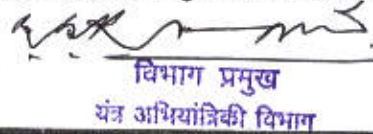 विभाग प्रमुख
यंत्र अभियांत्रिकी विभाग